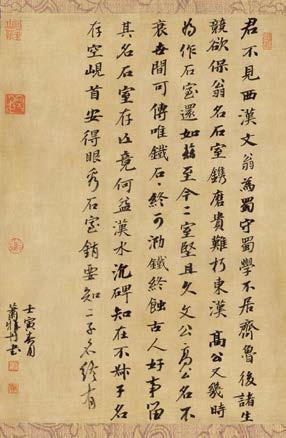 君不見西漢文翁為蜀守蜀學不居齊魯後諸生
競欲保翁名石室鐫磨貴難朽東漢高公又幾時
為作石室還如至今二室堅且久文公高公名不
衰世間可傳唯鐵石々終可泐鐵終蝕古人好事留
其名石室存亡竟何益漢水沉碑知在不叔子名
存空峴首安得眼看石室銷要知二子名終有
壬寅春月
蕭書